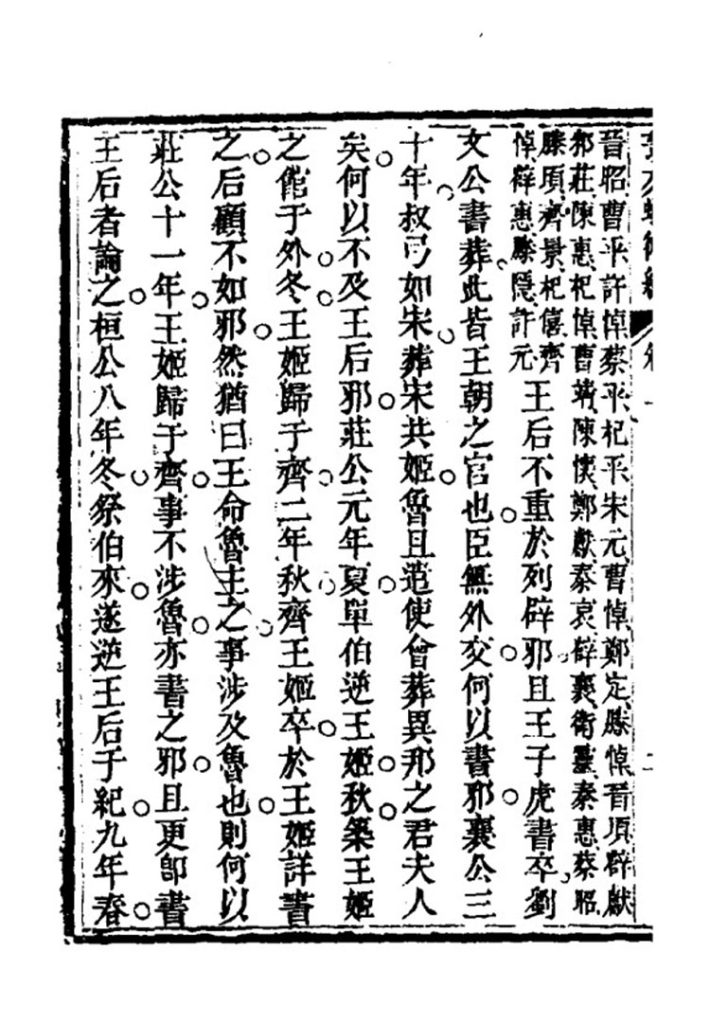 晉昭曹平許悼蔡平杞平宋元曹悼鄭定滕悼晉頃薛獻
邾莊陳惠杞悼曹靖陳懷鄭獻秦哀薛襄衛靈秦惠蔡昭
滕頃齊景杞僖齊
悼薛惠滕隱許元
王后不重於列辟邪且王子虎書卒劉
文公書葬此皆王朝之官也臣無外交何以書邪襄公三
十年叔弓如宋葬宋共姬魯且遣使會葬異邦之君夫人
矣何以不及王后邪莊公元年夏單伯逆王姬秋築王姬
之館于外冬王姬歸于齊二年秋齊王姬卒於王姬詳書
之后顧不如邪然猶曰王命魯主之事涉及魯也則何以
莊公十一年王姬歸于齊事不涉魯亦書之邪且更卽書
王后者論之桓公八年冬祭伯來遂逆王后于紀九年春